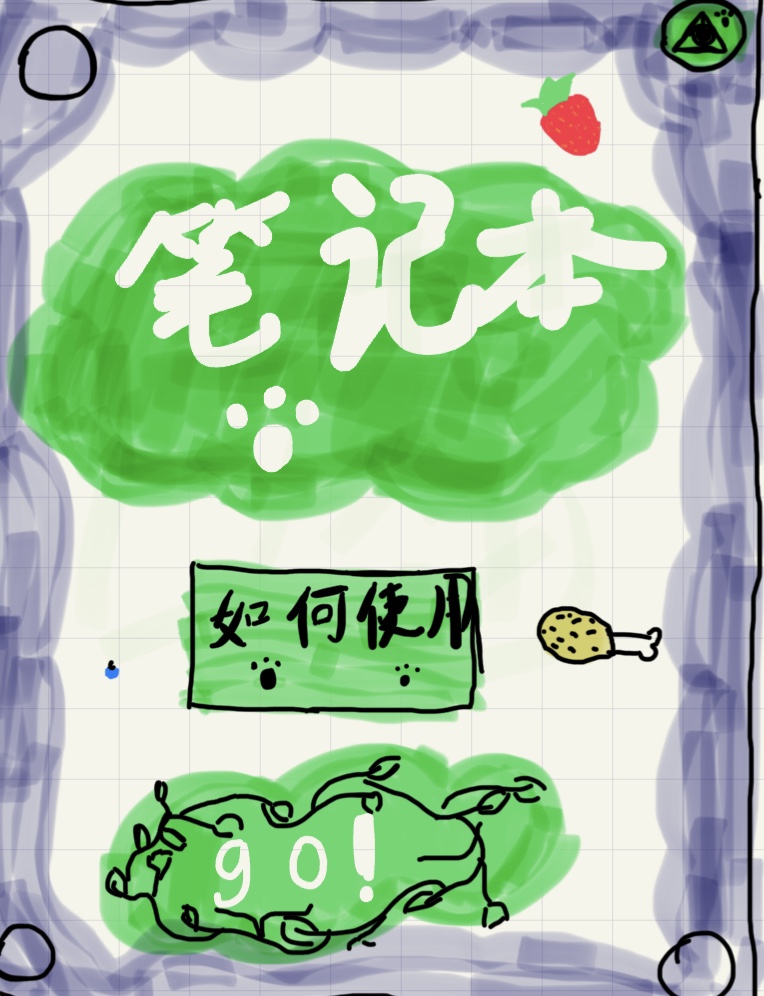 笔记本
如何使用
go!